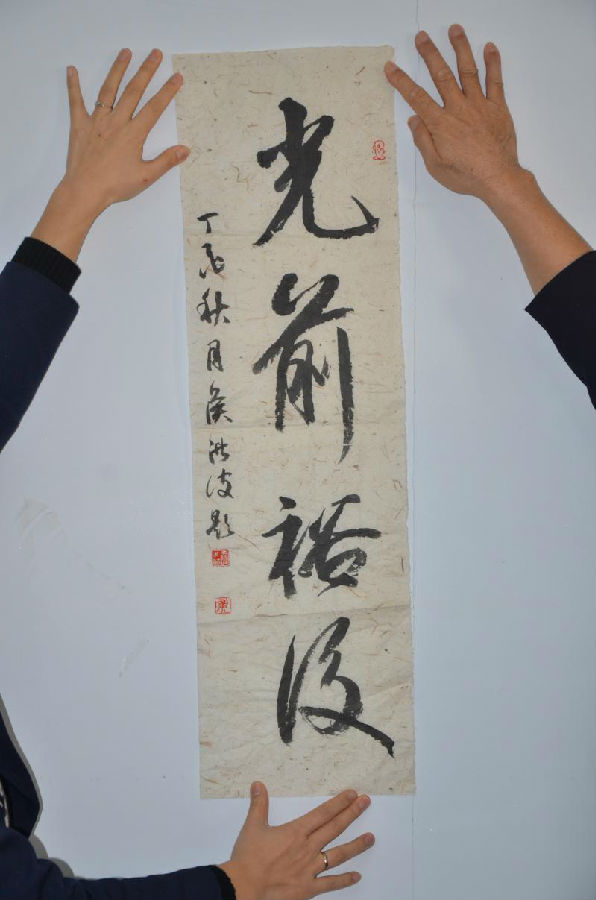 光前裕後
丁酉秋月侯洪波題